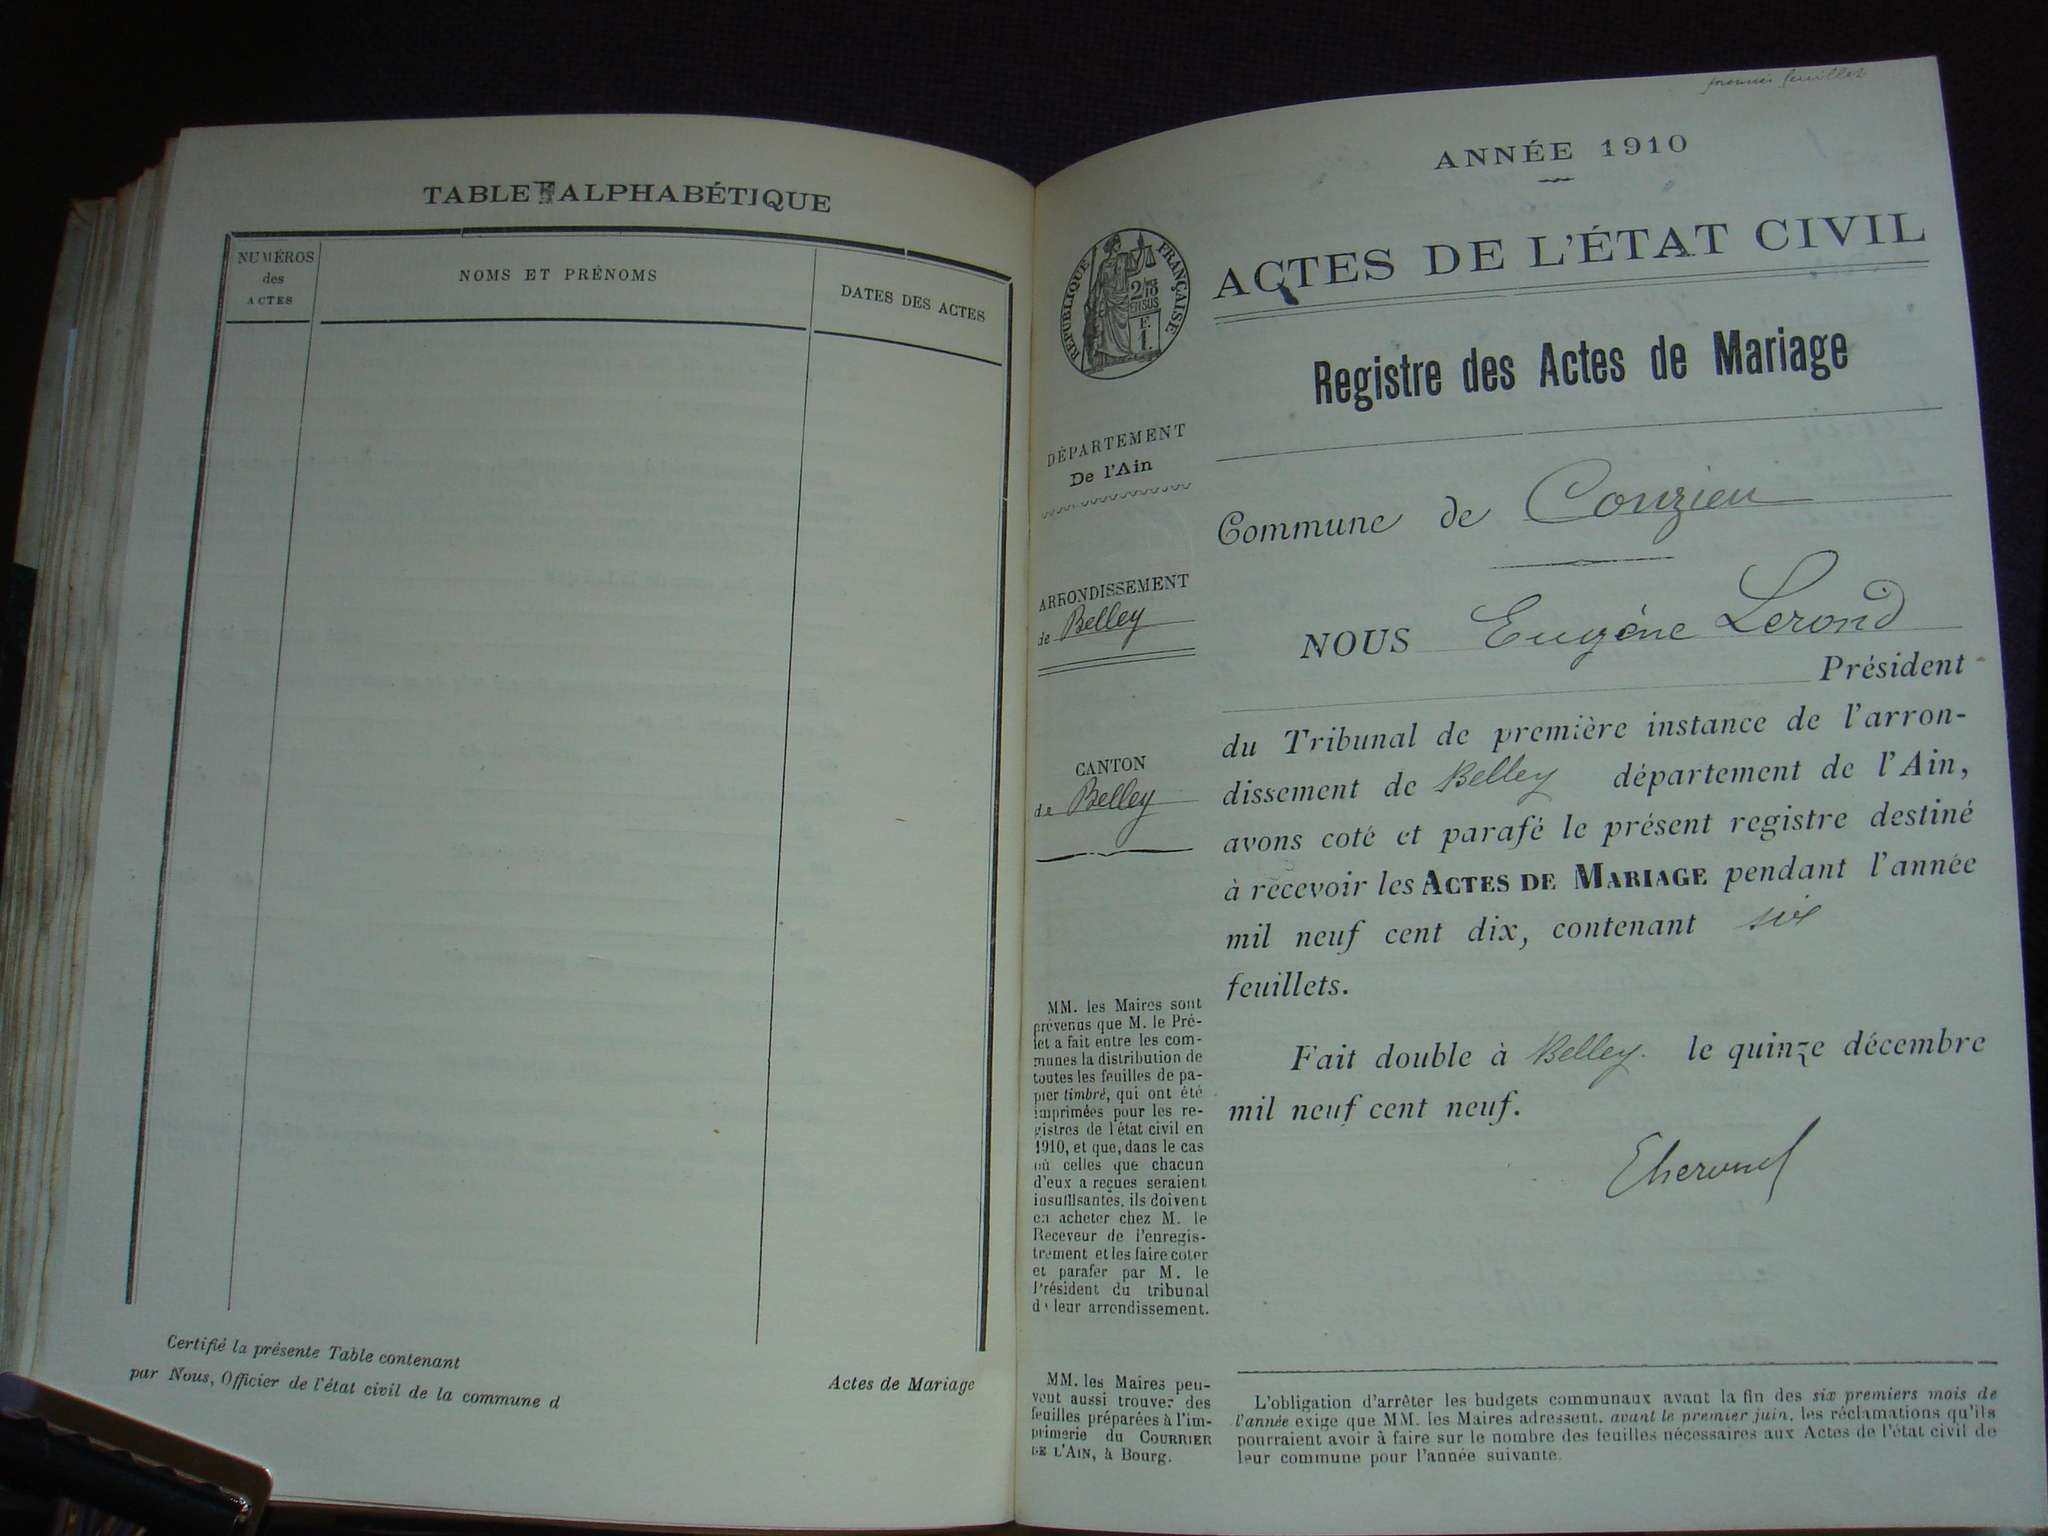 TABLE ALPHABÉTIQUE
NUMÉROS
des
ACTES
NOMS ET PRÉNOMS
DATES DES ACTES
Certifié la présente Table contenant
par Nous, Officier de l'état civil de la commune d
Actes de Mariage
premier feuillet
ANNÉE 1910
RÉPUBLIQUE FRANÇAISE
2/10
EN SUS
F.
1.
ACTES DE L'ÉTAT CIVIL
Registre des Actes de Mariage
DÉPARTEMENT
De l'Ain
ARRONDISSEMENT
de Belley
CANTON
de Belley
MM. les Maires sont
prévenus que M. le Pré-
fet a fait entre les com-
munes la distribution de
toutes les feuilles de pa-
pier timbré, qui ont été
imprimées pour les re-
gistres de l'état civil en
1910, et que, dans le cas
où celles que chacun
d'eux a reçues seraient
insuffisantes, ils doivent
en acheter chez M. le
Receveur de l'enregis-
trement et les faire coter
et parafer par M. le
Président du tribunal
de leur arrondissement.
MM. les Maires peu-
vent aussi trouver des
feuilles préparées à l'im-
primerie du COURRIER
DE L'AIN, à Bourg.
Commune de Conzieu
NOUS Eugène Lerond
Président
du Tribunal de première instance de l'arron-
dissement de Belley département de l'Ain,
avons coté et parafé le présent registre destiné
à recevoir les ACTES DE MARIAGE pendant l'année
mil neuf cent dix, contenant six
feuillets.
Fait double à Belley. le quinze décembre
mil neuf cent neuf.
L'obligation d'arrêter les budgets communaux avant la fin des six premiers mois de
l'année exige que MM. les Maires adressent, avant le premier juin, les réclamations qu'ils
pourraient avoir à faire sur le nombre des feuilles nécessaires aux Actes de l'état civil de
leur commune pour l'année suivante.